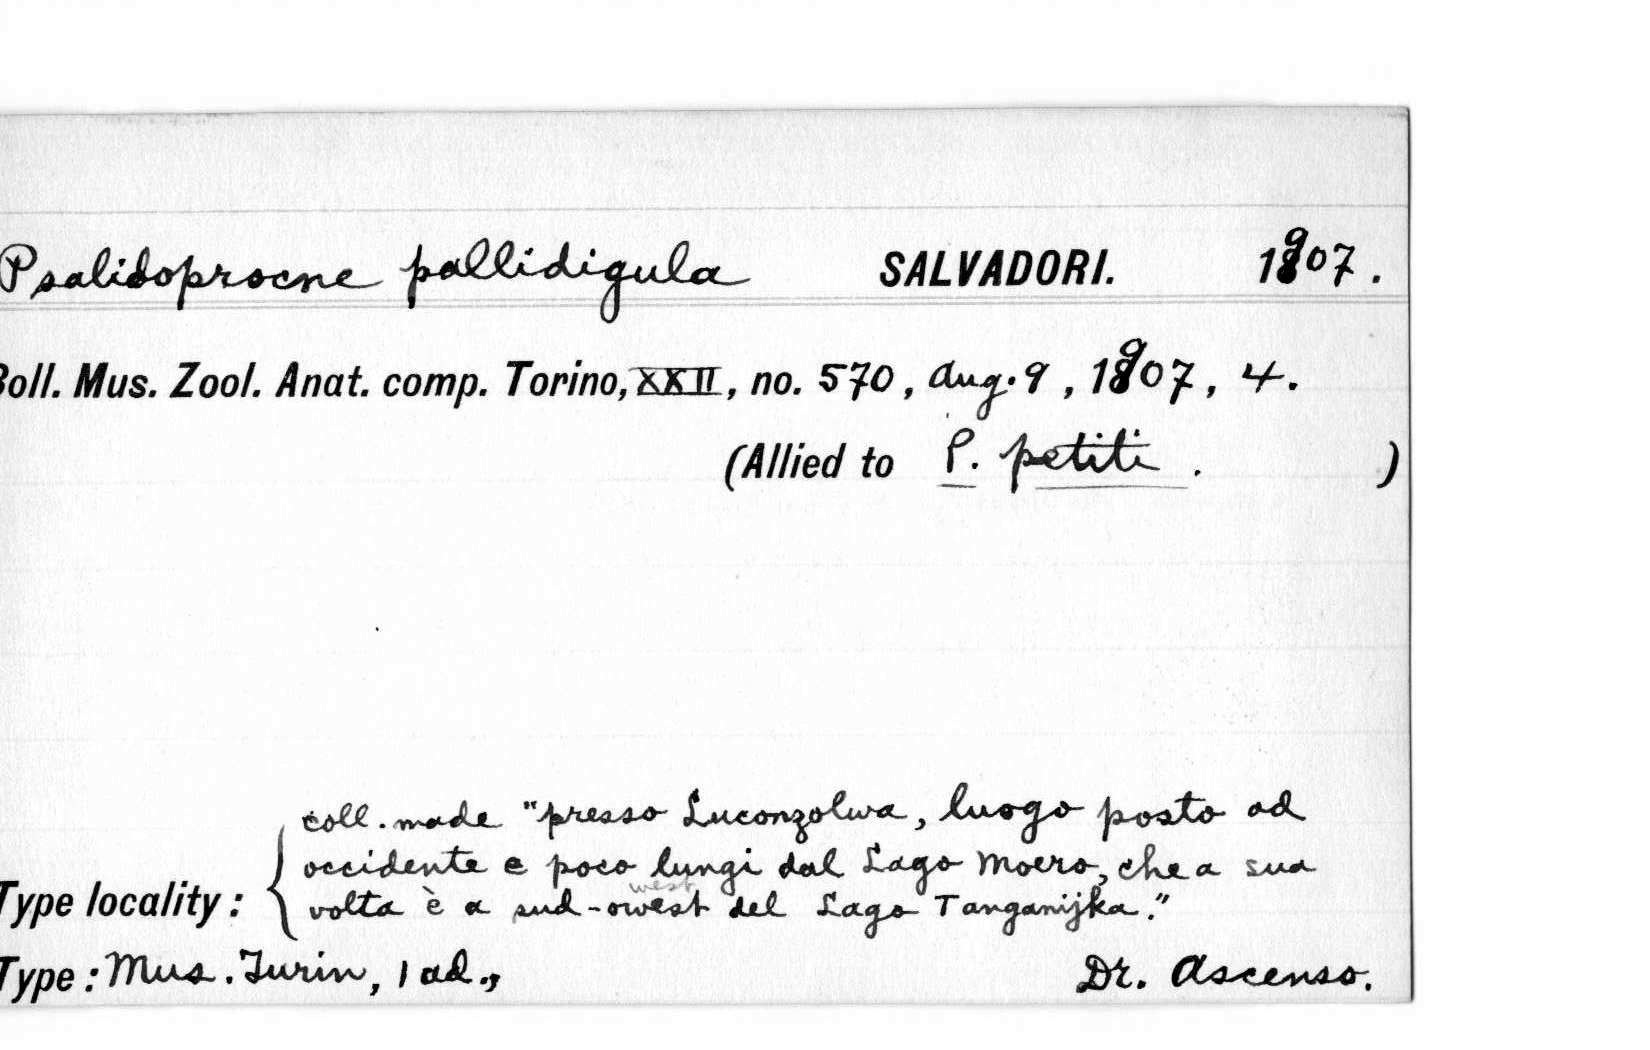 Psalidoprocne pallidigula SALVADORI. 1907.
Boll. Mus. Zool. Anat. comp. Torino, XXII, no. 570, Aug. 9, 1907, 4.
(Allied to P. petiti. )
coll. made "presso Luconzolwa, luogo posto ad
occidente e poco lungi dal Lago Moero, che a sua
west
Type locality: volta è a sud-owest del Lago Tanganijka."
Type: Mus. Turin, 1 ad., Dr. Ascenso.